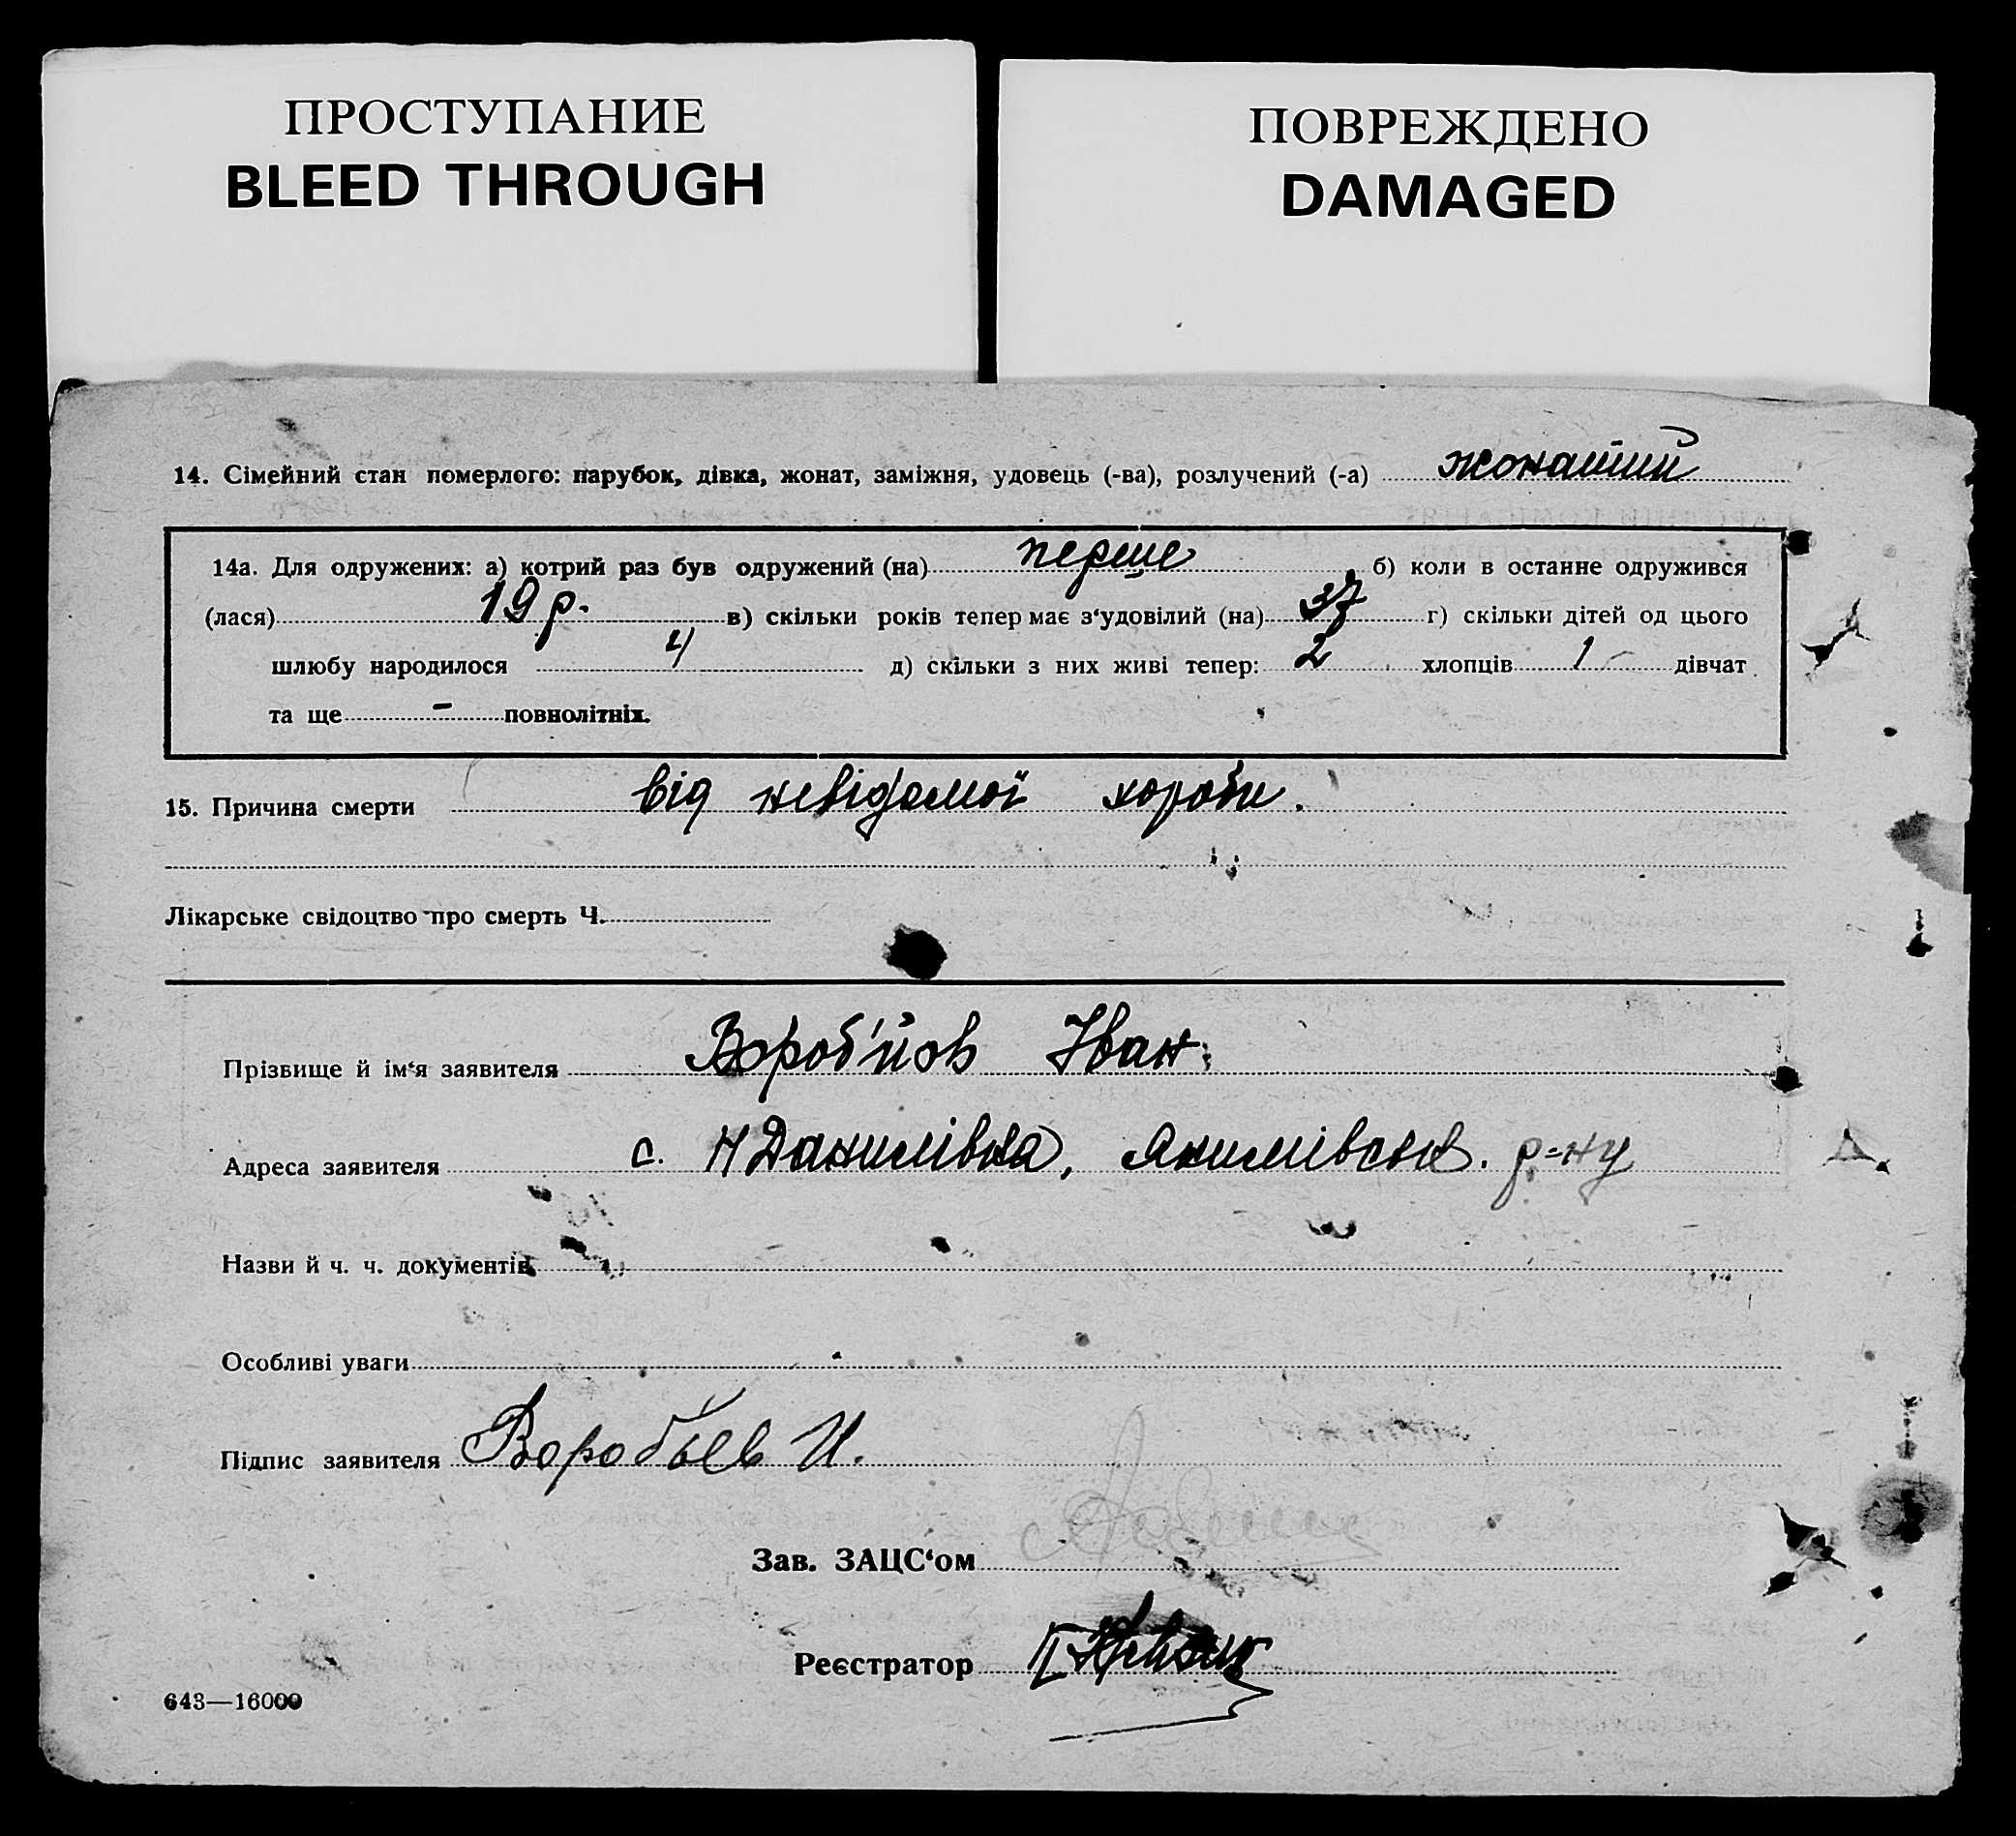 ПРОСТУПАНИЕ
BLEED THROUGH
ПОВРЕЖДЕНО
DAMAGED
14. Сімейний стан померлого: парубок, дівка, жонат, заміжня, удовець (-ва), розлучений (-а) жонатий
14а. Для одружених: а) котрий раз був одружений (на) перше б) коли в останне одружився
(лася) 19 р. в) скільки років тепер має з‘удовілий (на) 37 г) скільки дітей од цього
шлюбу народилося 4 д) скільки з них живі тепер: 2 хлопців 1 дівчат
та ще - повнолітніх.
15. Причина смерти від невідомої хороби.
Лікарське свідоцтво про смерть Ч.
Прізвище й ім‘я заявителя Вороб'йов Іван
Адреса заявителя с. Н Данилівка, Якимівськ. р-ну
Назви й ч. ч. документів
Особливі уваги
Підпис заявителя Воробьев И.
Зав. ЗАЦС‘ом
Реєстратор
643—16000